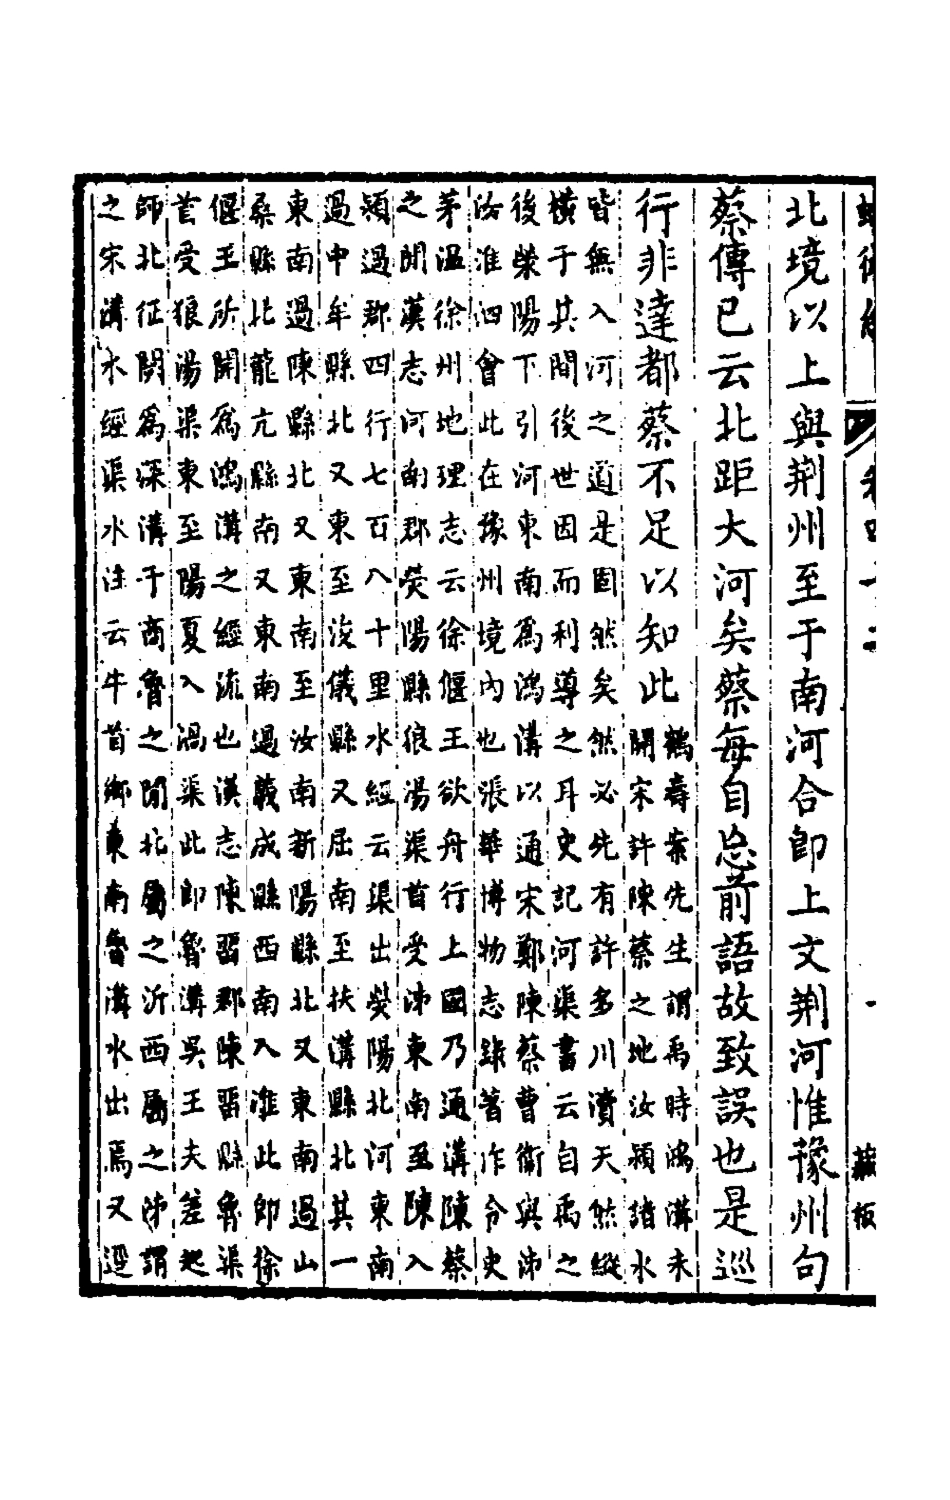 北境以上與荆州至于南河合卽上文荆河惟豫州句
蔡傳已云北距大河矣蔡每自忘前語故致誤也是巡
行非達都蔡不足以知此
鶴壽案先生謂禹時鴻溝未
開宋許陳蔡之地汝潁諸水
皆無入河之道是固然矣然必先有許多川瀆天然縱
橫于其間後世因而利導之耳史記河渠書云自禹之
後滎陽下引河東南爲鴻溝以通宋鄭陳蔡曹衛與泲
汝淮泗會此在豫州境內也張華博物志錄著作令史
茅溫徐州地理志云徐偃王欲舟行上國乃通溝陳蔡
之閒漢志河南郡滎陽縣狼湯渠首受泲東南至陳入
潁過郡四行七百八十里水經云渠出滎陽北河東南
過中牟縣北又東至浚儀縣又屈南至扶溝縣北其一
東南過陳縣北又東南至汝南新陽縣北又東南過山
桑縣北龍亢縣南又東南過義成縣西南入淮此卽徐
偃王所開爲鴻溝之經流也漢志陳畱郡陳畱縣魯渠
首受狼湯渠東至陽夏入渦渠此卽魯溝吳王夫差起
師北征闕爲深溝于商魯之閒北屬之沂西屬之泲謂
之宋溝水經渠水注云牛首鄉東南魯溝水出焉又逕
卷四十二
藏板